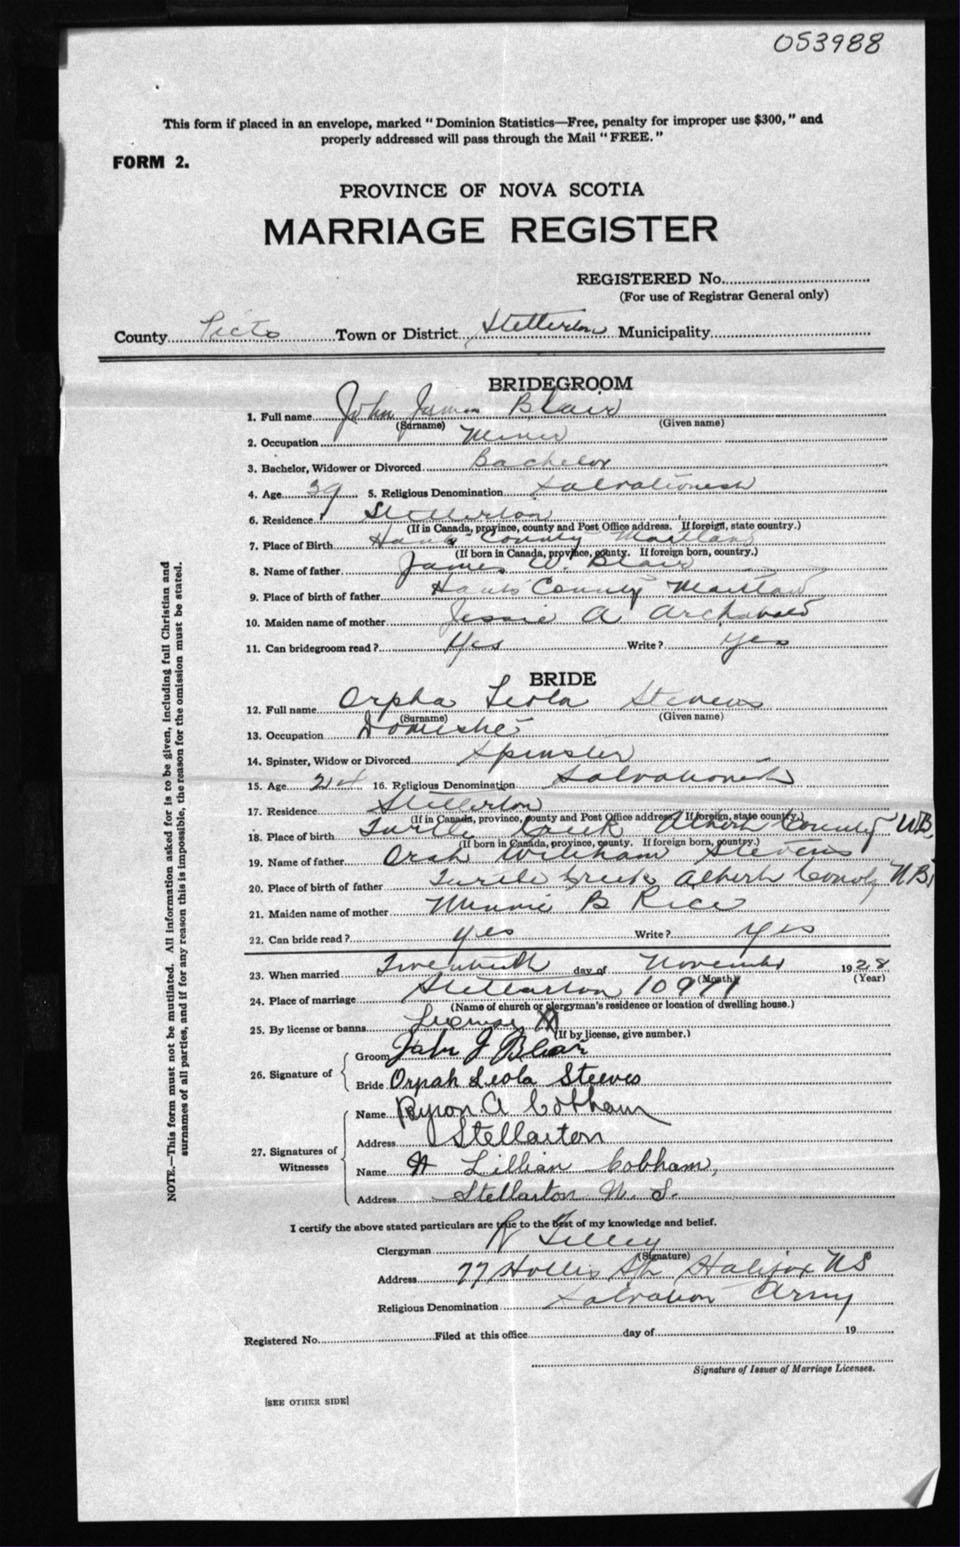 053988
This form if placed in an envelope, marked "Dominion Statistics—Free, penalty for improper use $300," and
properly addressed will pass through the Mail "FREE."
FORM 2.
PROVINCE OF NOVA SCOTIA
MARRIAGE REGISTER
REGISTERED No.
(For use of Registrar General only)
County Picto Town or District Stellerton Municipality
BRIDEGROOM
1. Full name John James Blair
(Surname) (Given name)
2. Occupation Miner
3. Bachelor, Widower or Divorced Bachelor
4. Age 39 5. Religious Denomination Salvationesh
6. Residence Stellerton
(If in Canada, province, county and Post Office address. If foreign, state country.)
7. Place of Birth Hants County Maitland
(If born in Canada, province, county. If foreign born, country.)
8. Name of father James W. Blair
9. Place of birth of father Hants County Maitland
10. Maiden name of mother Jessie A Archabald
11. Can bridegroom read? Yes Write? Yes
BRIDE
12. Full name Orpha Leola Steves
(Surname) (Given name)
13. Occupation Domestic
14. Spinster, Widow or Divorced Spinster
15. Age 24 16. Religious Denomination Salvationesh
17. Residence Stellerton
(If in Canada, province, county and Post Office address. If foreign, state country.)
18. Place of birth Turtle Creek Alberh County NB.
(If born in Canada, province, county. If foreign born, country.)
19. Name of father Orah William Steves
20. Place of birth of father Turtle Creek Alberh County N.B.
21. Maiden name of mother Minnie B Rice
22. Can bride read? Yes Write? Yes
23. When married Twentieth day of November 1928
(Month) (Year)
24. Place of marriage Stellarton 10971
(Name of church or clergyman's residence or location of dwelling house.)
25. By license or banns License
(If by license, give number.)
26. Signature of
Groom John J Blair
Bride Orpah Leola Steeves
27. Signatures of Witnesses
Name Byron A Cobham
Address Stellarton
Name Lillian Cobham,
Address Stellarton N. S.
I certify the above stated particulars are true to the best of my knowledge and belief.
Clergyman R Tilley
(Signature)
Address 77 Hollis St Halifax NS
Religious Denomination Salvation Army
Registered No. Filed at this office day of 19
Signature of Issuer of Marriage Licenses.
[SEE OTHER SIDE]
NOTE.—This form must not be mutilated. All information asked for is to be given, including full Christian and
surnames of all parties, and if for any reason this is impossible, the reason for the omission must be stated.